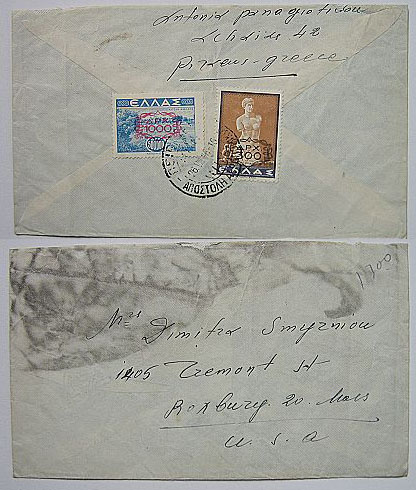 Antonia Panagiotidou
42
Piraeus-greece
ΕΛΛΑΣ
ΔΡΧ
1000
ΔΡΧ
ΕΛΛΑΣ
ΑΠΟΣΤΟΛΗ
1900
Mrs Dimitra Smyrniou
1405 Tremont St
Roxbury. 20. Mass
U. S. A